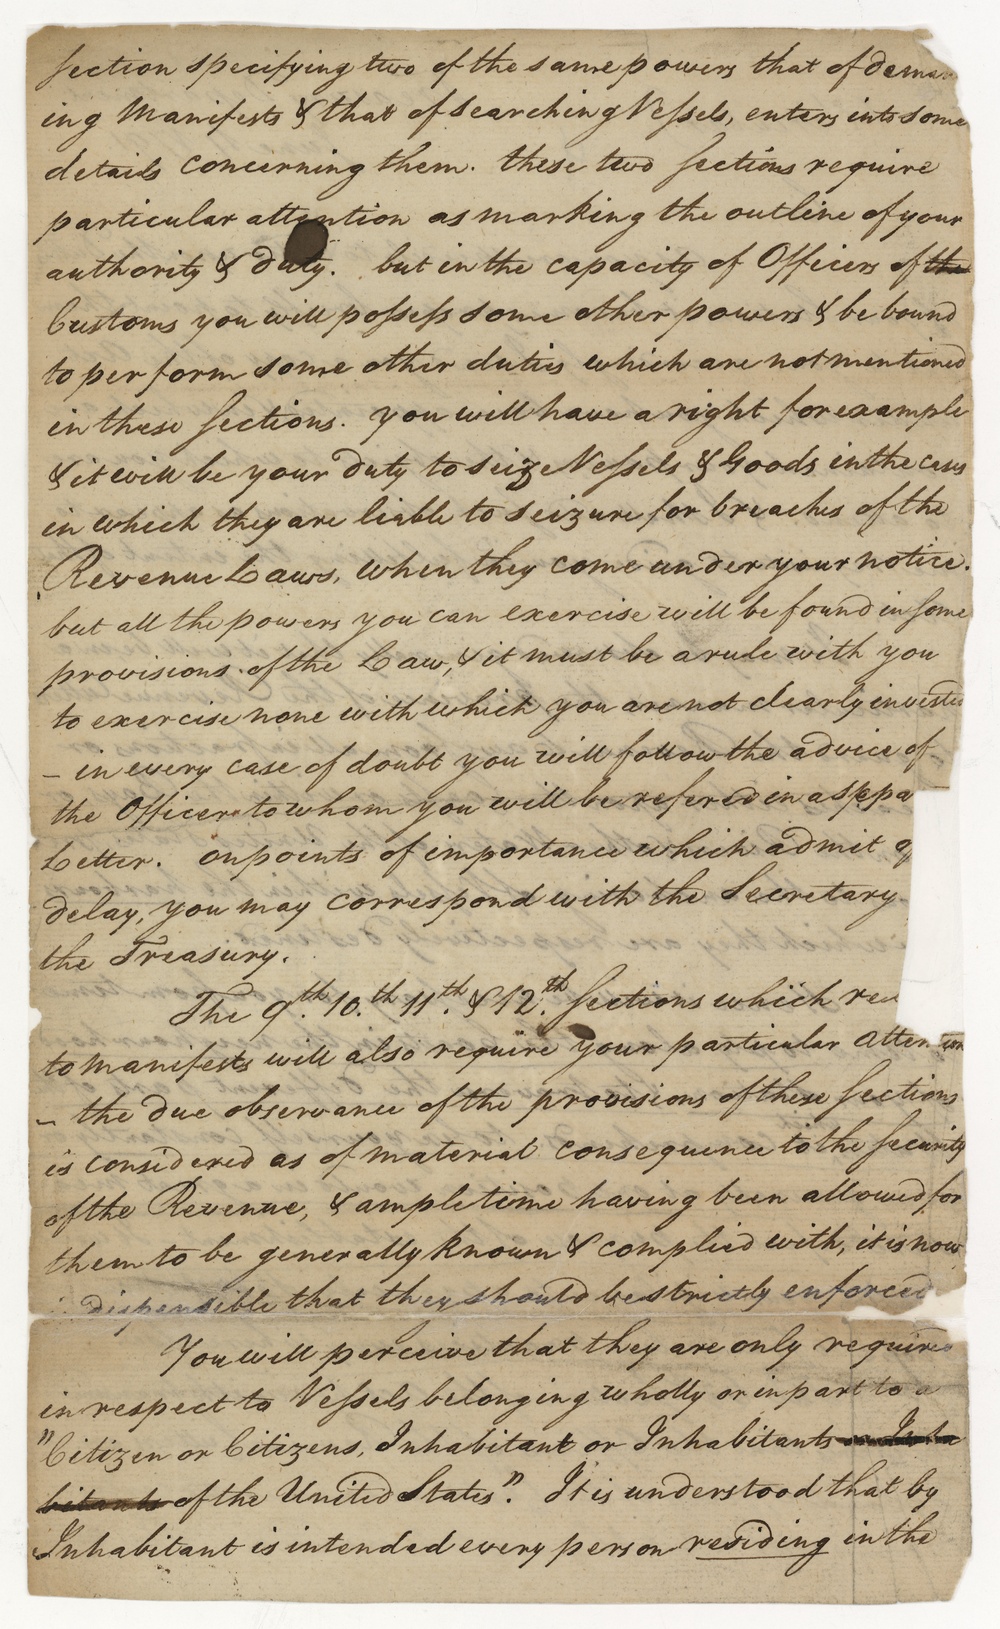 section specifying two of the same powers that of deman
ing Manifests & that of searching Vessels, enters into some
details concerning them. these two sections require
particular attention as marking the outline of your
authority & duty. but in the capacity of Officers of the
Customs you will possess some other powers & be bound
to perform some other duties which are not mentioned
in these sections. you will have a right for example
& it will be your duty to seize Vessels & Goods in the cases
in which they are liable to seizure for breaches of the
Revenue Laws, when they come under your notice.
but all the powers you can exercise will be found in some
provisions of the Law, & it must be a rule with you
to exercise none with which you are not clearly invested
– in every case of doubt you will follow the advice of
the Officer to whom you will be refered in a sepa
Letter. on points of importance which admit of
delay, you may correspond with the Secretary
the Treasury.
The 9th. 10.th 11th. & 12.th sections which re
to manifests will also require your particular atten
– the due observance of the provisions of these sections
is considered as of material consequence to the security
of the Revenue, & ample time having been allowed for
them to be generally known & complied with, it is now
dispensible that they should be strictly enforced
You will perceive that they are only required
in respect to Vessels belonging wholly or in part to a
"Citizen or Citizens, Inhabitant or Inhabitants or Inha
bitants of the United States". It is understood that by
Inhabitant is intended every person residing in the